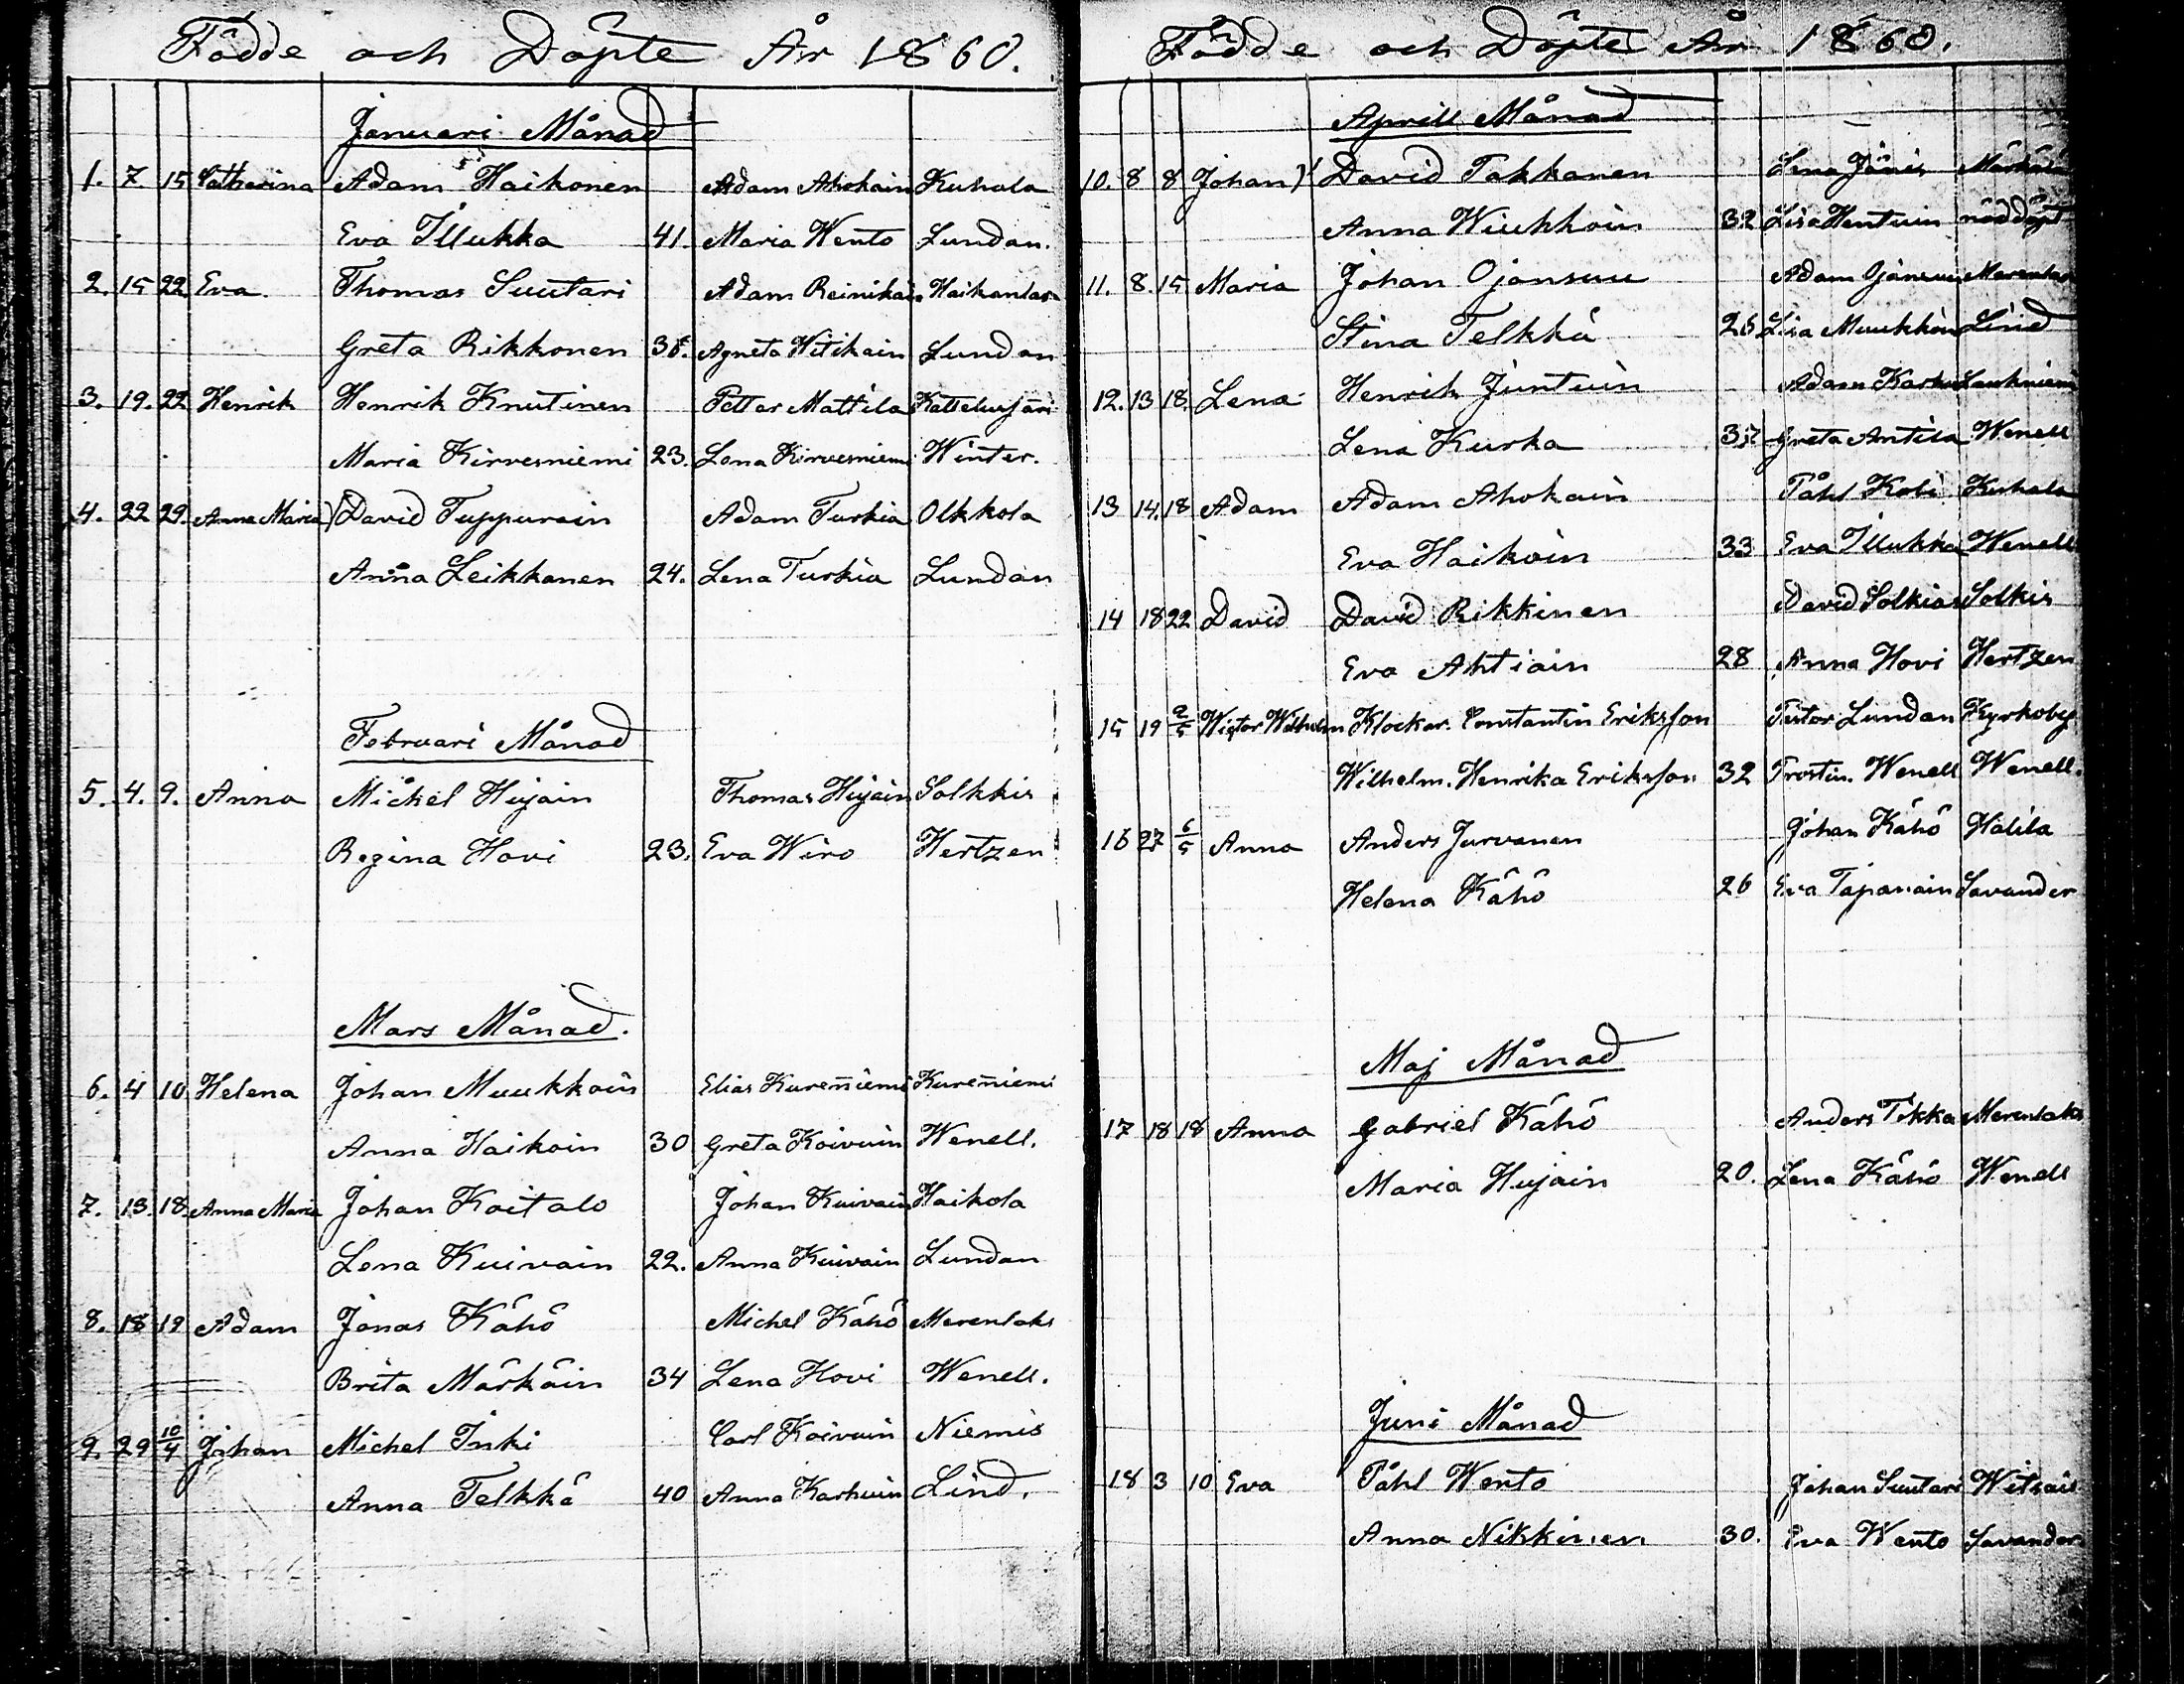 Födde och Döpte År 1860.
Januari Månad
1. 7. 15 Catharina Adam Haikonen Adam Ahokain Kuhala
Eva Illukka 41. Maria Wento Lundan.
2. 15 22 Eva. Thomas Suutari Adam Reinikain Haikanlax
Greta Rikkonen Agneta Witikain Lundan
3. 19. 22 Henrik Henrik Knutinen Petter Mattila Kattelusjärvi
Maria Kirvesniemi 23. Lena Kirvesniemi Winter.
4. 22 29. Anna Maria) David Tuppurain Adam Turkia Olkkola
Anna Leikkanen 24. Lena Turkia Lundan
Februari Månad
5. 4. 9. Anna Michel Hujain Thomas Hujain Solkkis
Regina Hovi 23. Eva Wiro Hertzen
Mars Månad.
6. 4 10 Helena Johan Muukkoin Elias Kureñiemi Kureñiemi
Anna Haikoin 30 Greta Koivuin Wenell.
7. 13. 18. Anna Maria Johan Koitalo Johan Kuivain Haikola
Lena Kuivain 22. Anna Kuivain Lundan
8. 18 19 Adam Jonas Kähö Michel Kähö Merenlaks
Brita Märkäin 34 Lena Hovi Wenell.
9. 29 10/4 Johan Michel Inki Carl Koivuin Niemis
Anna Telkkä 40 Anna Karhuin Lind.
Födde och Döpte År 1860.
Aprill Månad
10. 8 8 Johan) David Takkanen Lena Jänis
Anna Wiukkoin 32 Lisa Hentuin nöddöpt
11. 8. 15 Maria Johan Ojansuu Adam Ojansuu Merenlax
Stina Telkkä Lisa Muukkoin Lind
12. 13 18. Lena Henrik Juntuin Adam Karhu Lankniemi
Lena Kurka Greta Antila Wenell
13 14. 18 Adam Adam Ahokain Påhl Kobi Kuhala
Eva Haikoin 33 Eva Illukka Wenell
14 18 22 David David Rikkinen David Solkias Solkis
Eva Ahtiain 28 Anna Hovi Hertzen
15 19 2/5 Wigtor Wilhelm Klockar. Constantin Eriksson Lundan Kyrkoby
Wilhelm. Henrika Eriksson 32 Wenell Wenell.
16 27 6/5 Anna Anders Jurvanen Johan Kähö Halila
Helena Kähö 26 Eva Tapanain Savander
Maj Månad
17 18 18 Anna Gabriel Kähö Anders Tikka Merenlaks
Maria Hujain 20. Lena Kähö Wenell
Juni Månad
18 3 10 Eva Påhl Wento Johan Suutari Witsais
Anna Nikkinen 30. Eva Wento Savander